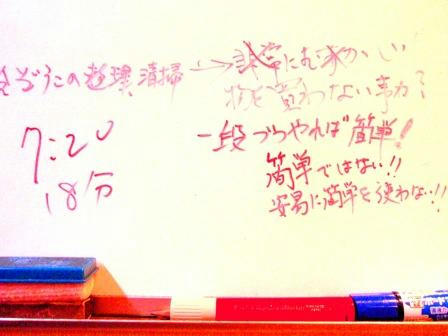 れいぞうこの整理清掃→非常にむずかしい
物を買わない事か？
一段づつやれば簡単！
簡単ではない!!
安易に簡単を使わない!!
7:20
18分
ボード